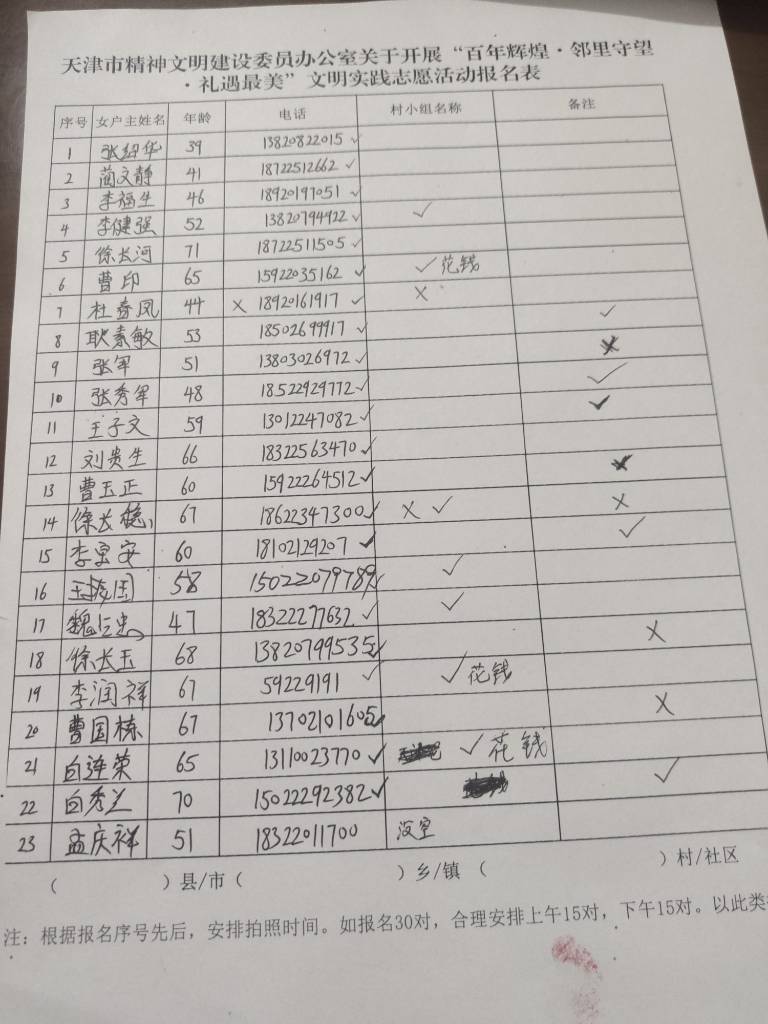 天津市精神文明建设委员办公室关于开展“百年辉煌·邻里守望
·礼遇最美”文明实践志愿活动报名表
序号 女户主姓名 年龄 电话 村小组名称 备注
1 张绍华 39 13820822015 ✓
2 蔺文静 41 18722512662 ✓
3 李福生 46 18920197051 ✓
4 李健强 52 13820794922 ✓ ✓
5 徐长河 71 18722511505 ✓
6 曹印 65 15922035162 ✓ ✓花钱
7 杜春凤 44 × 18920161917 ✓ ×
8 耿素敏 53 18502699917 ✓ ✓
9 张军 51 13803026972 ✓ ×
10 张秀军 48 18522929772 ✓ ✓
11 王子文 59 13012247082 ✓ ✓
12 刘贵生 66 18322563470 ✓
13 曹玉正 60 15922264512 ✓ ×
14 徐长稳 67 18622347300 ✓ × ✓ ×
15 李宝安 60 18102129207 ✓ ✓
16 58 15022079789 ✓ ✓
17 魏仁忠 47 18322277632 ✓ ✓
18 徐长玉 68 13820799535 ✓ ×
19 李润祥 67 59229191 ✓ ✓花钱
20 曹国栋 67 13702101605 ✓ ×
21 白连荣 65 13110023770 ✓ ✓花钱
22 白秀兰 70 15022292382 ✓ ✓
23 孟庆祥 51 18322011700 没空
( )县/市( )乡/镇( )村/社区
注：根据报名序号先后，安排拍照时间。如报名30对，合理安排上午15对，下午15对。以此类